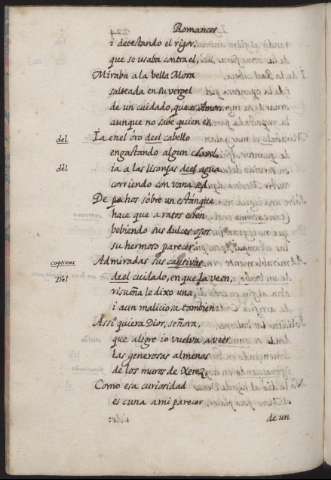 Romances
i detestando el rigor,
que se usaba contra el,
Miraba a la bella Mora
salteada en su vergel
de un cuidado, que es Amor,
aunque no sabe quien es.
del
Ia en el oro deel cabello
engastando algun clavel,
dil
ia a las lisonjas deel agua
corriendo con vana sed.
De pechos sobre un estanque
hace que a ratos esten
bebiendo sus dulces ojos
su hermoso parecer.
captivas
Admiradas sus captivas
Del
deel cuidado, en que la veen,
risueña le dixo una,
i aun maliciosa tambien:
Assi quiera Dios, señora,
que alegre io vuelva a ver
las generosas almenas
de los muros de Xerez,
Como esa curiosidad
es cuna a mi parecer
de un